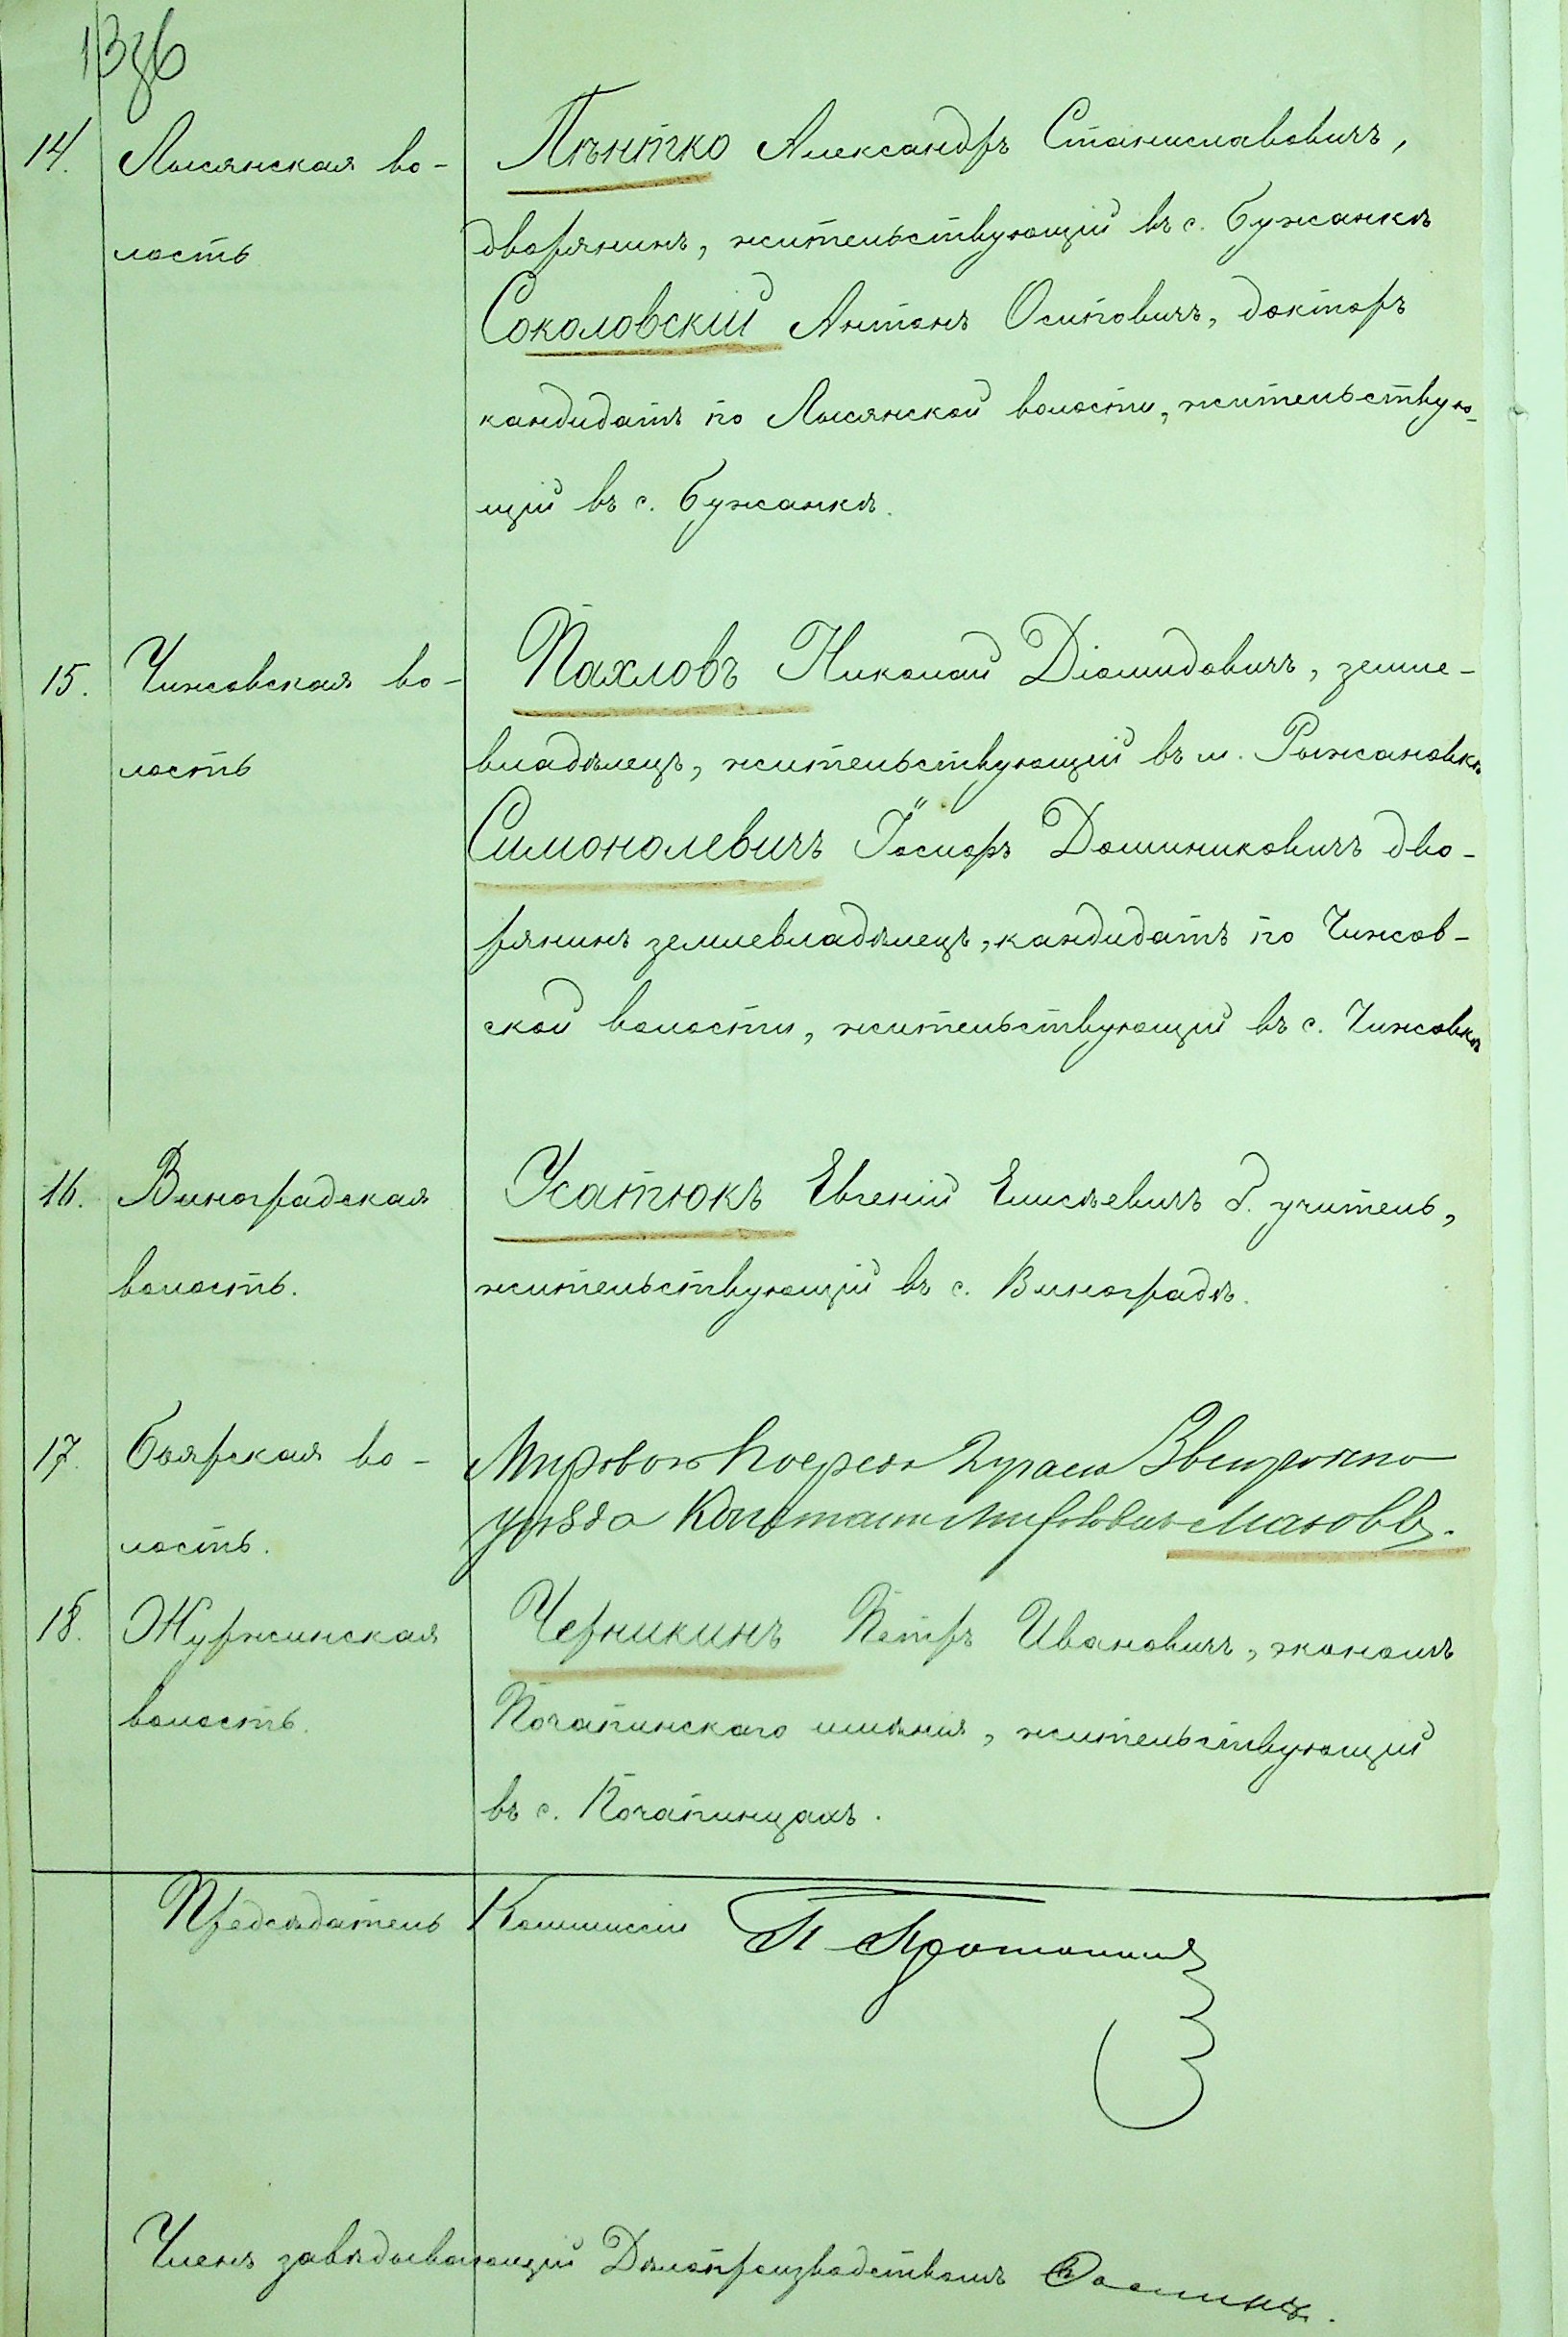 13об
14. Лысянская во- Пѣнтко Александръ Станиславовичъ,
лость дворянинъ, жительствующій въ с. Бужанкѣ
Соколовскій Антонъ Осиповичъ, докторъ
кандидатъ по Лысянской волости, жительствую-
щій въ с. Бужанкѣ.
15. Чижовская во- Пахловъ Николай Діомидовичъ, земле-
лость владѣлецъ, жительствующій въ м. Рыжановкѣ
Симонолевичъ Іосифъ Доминиковичъ дво-
рянинъ землевладѣлецъ, кандидатъ по Чижов-
ской волости, жительствующій въ с. Чижовкѣ
16. Виноградская Усатюкъ Евгеній Елисѣевичъ б. учитель,
волость. жительствующій въ с. Виноградѣ.
17. Боярская во- Мировой Посред 2 участ Звенигородско
лость. уѣзда Константин Маковъ.
18. Журжинская Черникинъ Петръ Ивановичъ, экономъ
волость. Почапинскаго имѣнія, жительствующій
въ с. Почапинцахъ.
Предсѣдатель Коммиссіи П
Членъ завѣдывающій Дѣлопроизводствомъ